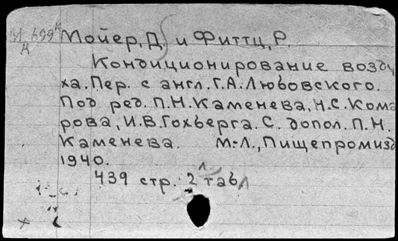 Мойер, Д. и Фиттц, Р.
Кондиционирование возду
ха. Пер. с англ. Г.А. Любовского.
Под ред. П.Н. Каменева, Н.С. Кома
рова, И.В. Гохберга. С допол. П.Н.
Каменева. М.-Л., Пищепромизд
1940.
439 стр. 2 табл